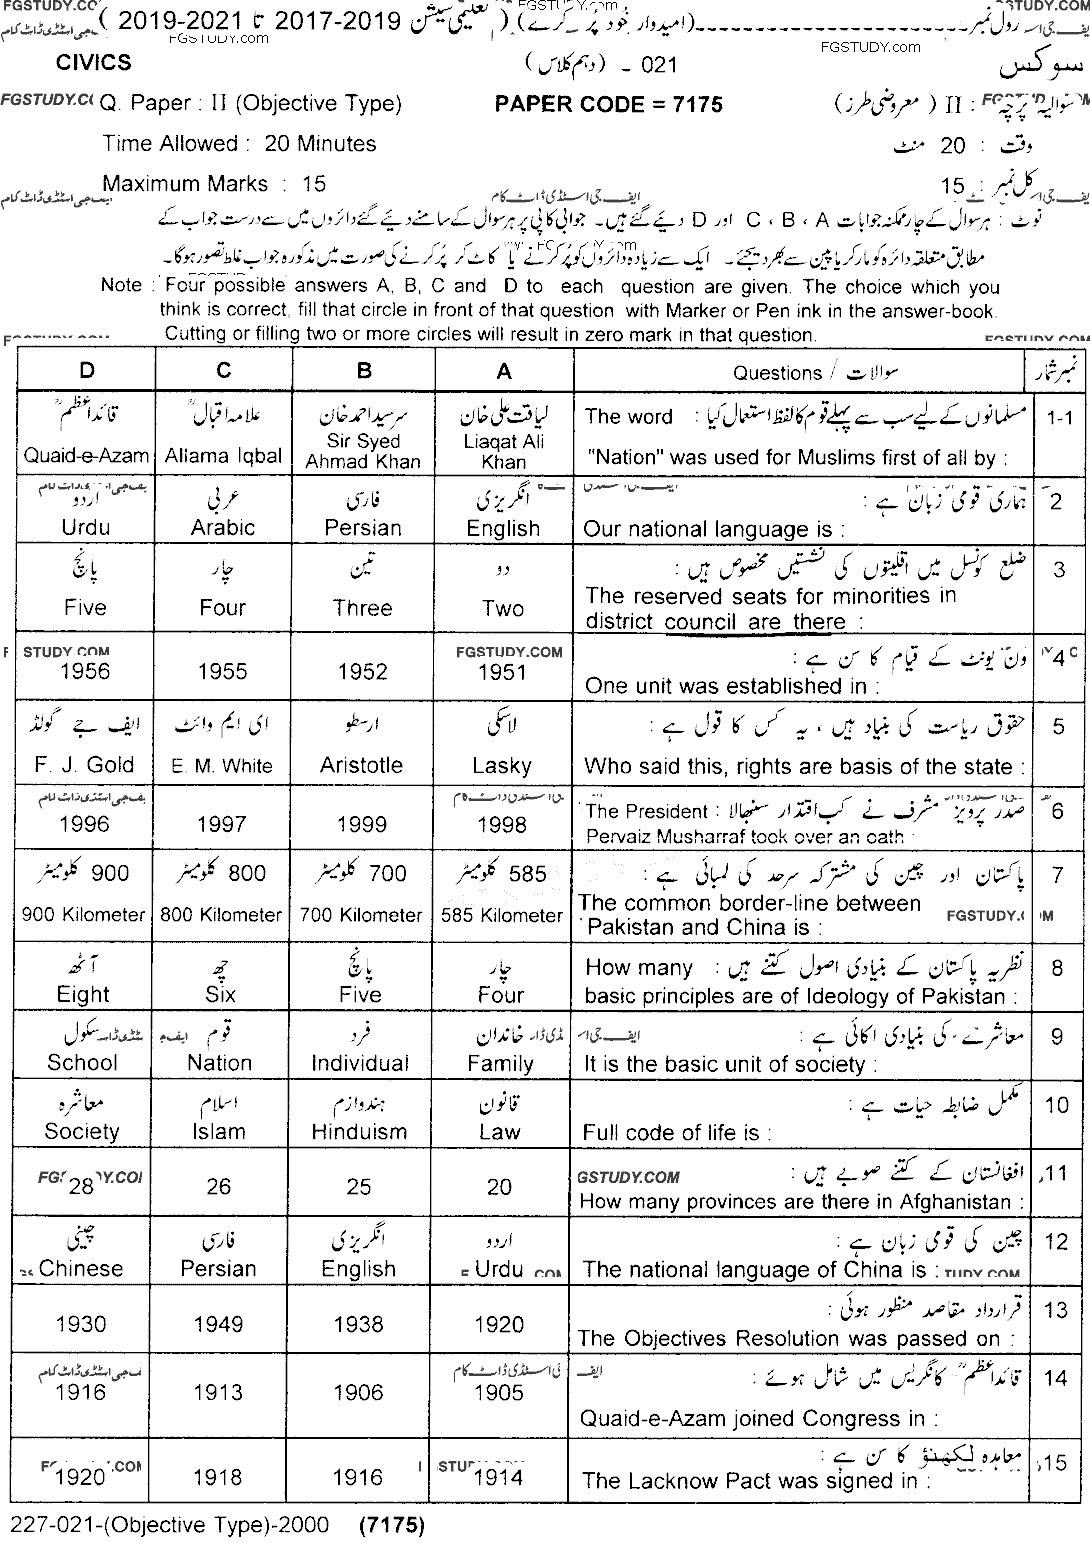 FGSTUDY.COM FGSTUDY.com STUDY.COM
رول نمبر (امیدوار خود پُر کرے) ( تعلیمی سیشن 2017-2019 تا 2019-2021 )
FGSTUDY.com FGSTUDY.com
CIVICS 021 - (دہم کلاس) سوکس
Q. Paper : II (Objective Type) PAPER CODE = 7175 سوالیہ پرچہ : II ( معروضی طرز )
Time Allowed : 20 Minutes وقت : 20 منٹ
Maximum Marks : 15 کل نمبر : 15
ایف جی اسٹڈی ڈاٹ کام
نوٹ : ہر سوال کے چار ممکنہ جوابات A ، B ، C اور D دیئے گئے ہیں۔ جوابی کاپی پر ہر سوال کے سامنے دیئے گئے دائروں میں سے درست جواب کے
مطابق متعلقہ دائرہ کو مارکر یا پین سے بھر دیجئے۔ ایک سے زیادہ دائروں کو پُر کرنے یا کاٹ کر پُر کرنے کی صورت میں مذکورہ جواب غلط تصور ہوگا۔
Note : Four possible answers A, B, C and D to each question are given. The choice which you
think is correct, fill that circle in front of that question with Marker or Pen ink in the answer-book.
Cutting or filling two or more circles will result in zero mark in that question.
D C B A Questions / سوالات نمبر شمار
قائداعظمؒ علامہ اقبالؒ سرسید احمد خان لیاقت علی خان The word : مسلمانوں کے لیے سب سے پہلے قوم کا لفظ استعمال کیا 1-1
Quaid-e-Azam Allama Iqbal Sir Syed Ahmad Khan Liaqat Ali Khan "Nation" was used for Muslims first of all by :
اردو عربی فارسی انگریزی ہماری قومی زبان ہے : 2
Urdu Arabic Persian English Our national language is :
پانچ چار تین دو ضلع کونسل میں اقلیتوں کی نشستیں مخصوص ہیں : 3
Five Four Three Two The reserved seats for minorities in
district council are there :
STUDY.COM FGSTUDY.COM ون یونٹ کے قیام کا سن ہے : 4
1956 1955 1952 1951 One unit was established in :
ایف جے گولڈ ای ایم وائٹ ارسطو لاسکی حقوق ریاست کی بنیاد ہیں ، یہ کس کا قول ہے : 5
F. J. Gold E. M. White Aristotle Lasky Who said this, rights are basis of the state :
The President : صدر پرویز مشرف نے کب اقتدار سنبھالا 6
1996 1997 1999 1998 Pervaiz Musharraf took over an oath :
900 کلومیٹر 800 کلومیٹر 700 کلومیٹر 585 کلومیٹر پاکستان اور چین کی مشترکہ سرحد کی لمبائی ہے : 7
900 Kilometer 800 Kilometer 700 Kilometer 585 Kilometer The common border-line between
Pakistan and China is :
آٹھ چھ پانچ چار How many : نظریہ پاکستان کے بنیادی اصول کتنے ہیں 8
Eight Six Five Four basic principles are of Ideology of Pakistan :
سکول قوم فرد خاندان معاشرے کی بنیادی اکائی ہے : 9
School Nation Individual Family It is the basic unit of society :
معاشرہ اسلام ہندوازم قانون مکمل ضابطہ حیات ہے : 10
Society Islam Hinduism Law Full code of life is :
GSTUDY.COM افغانستان کے کتنے صوبے ہیں : 11
28 26 25 20 How many provinces are there in Afghanistan :
چینی فارسی انگریزی اردو چین کی قومی زبان ہے : 12
Chinese Persian English Urdu The national language of China is :
قرارداد مقاصد منظور ہوئی : 13
1930 1949 1938 1920 The Objectives Resolution was passed on :
قائداعظمؒ کانگریس میں شامل ہوئے : 14
1916 1913 1906 1905 Quaid-e-Azam joined Congress in :
معاہدہ لکھنؤ کا سن ہے : 15
1920 1918 1916 1914 The Lacknow Pact was signed in :
227-021-(Objective Type)-2000 (7175)